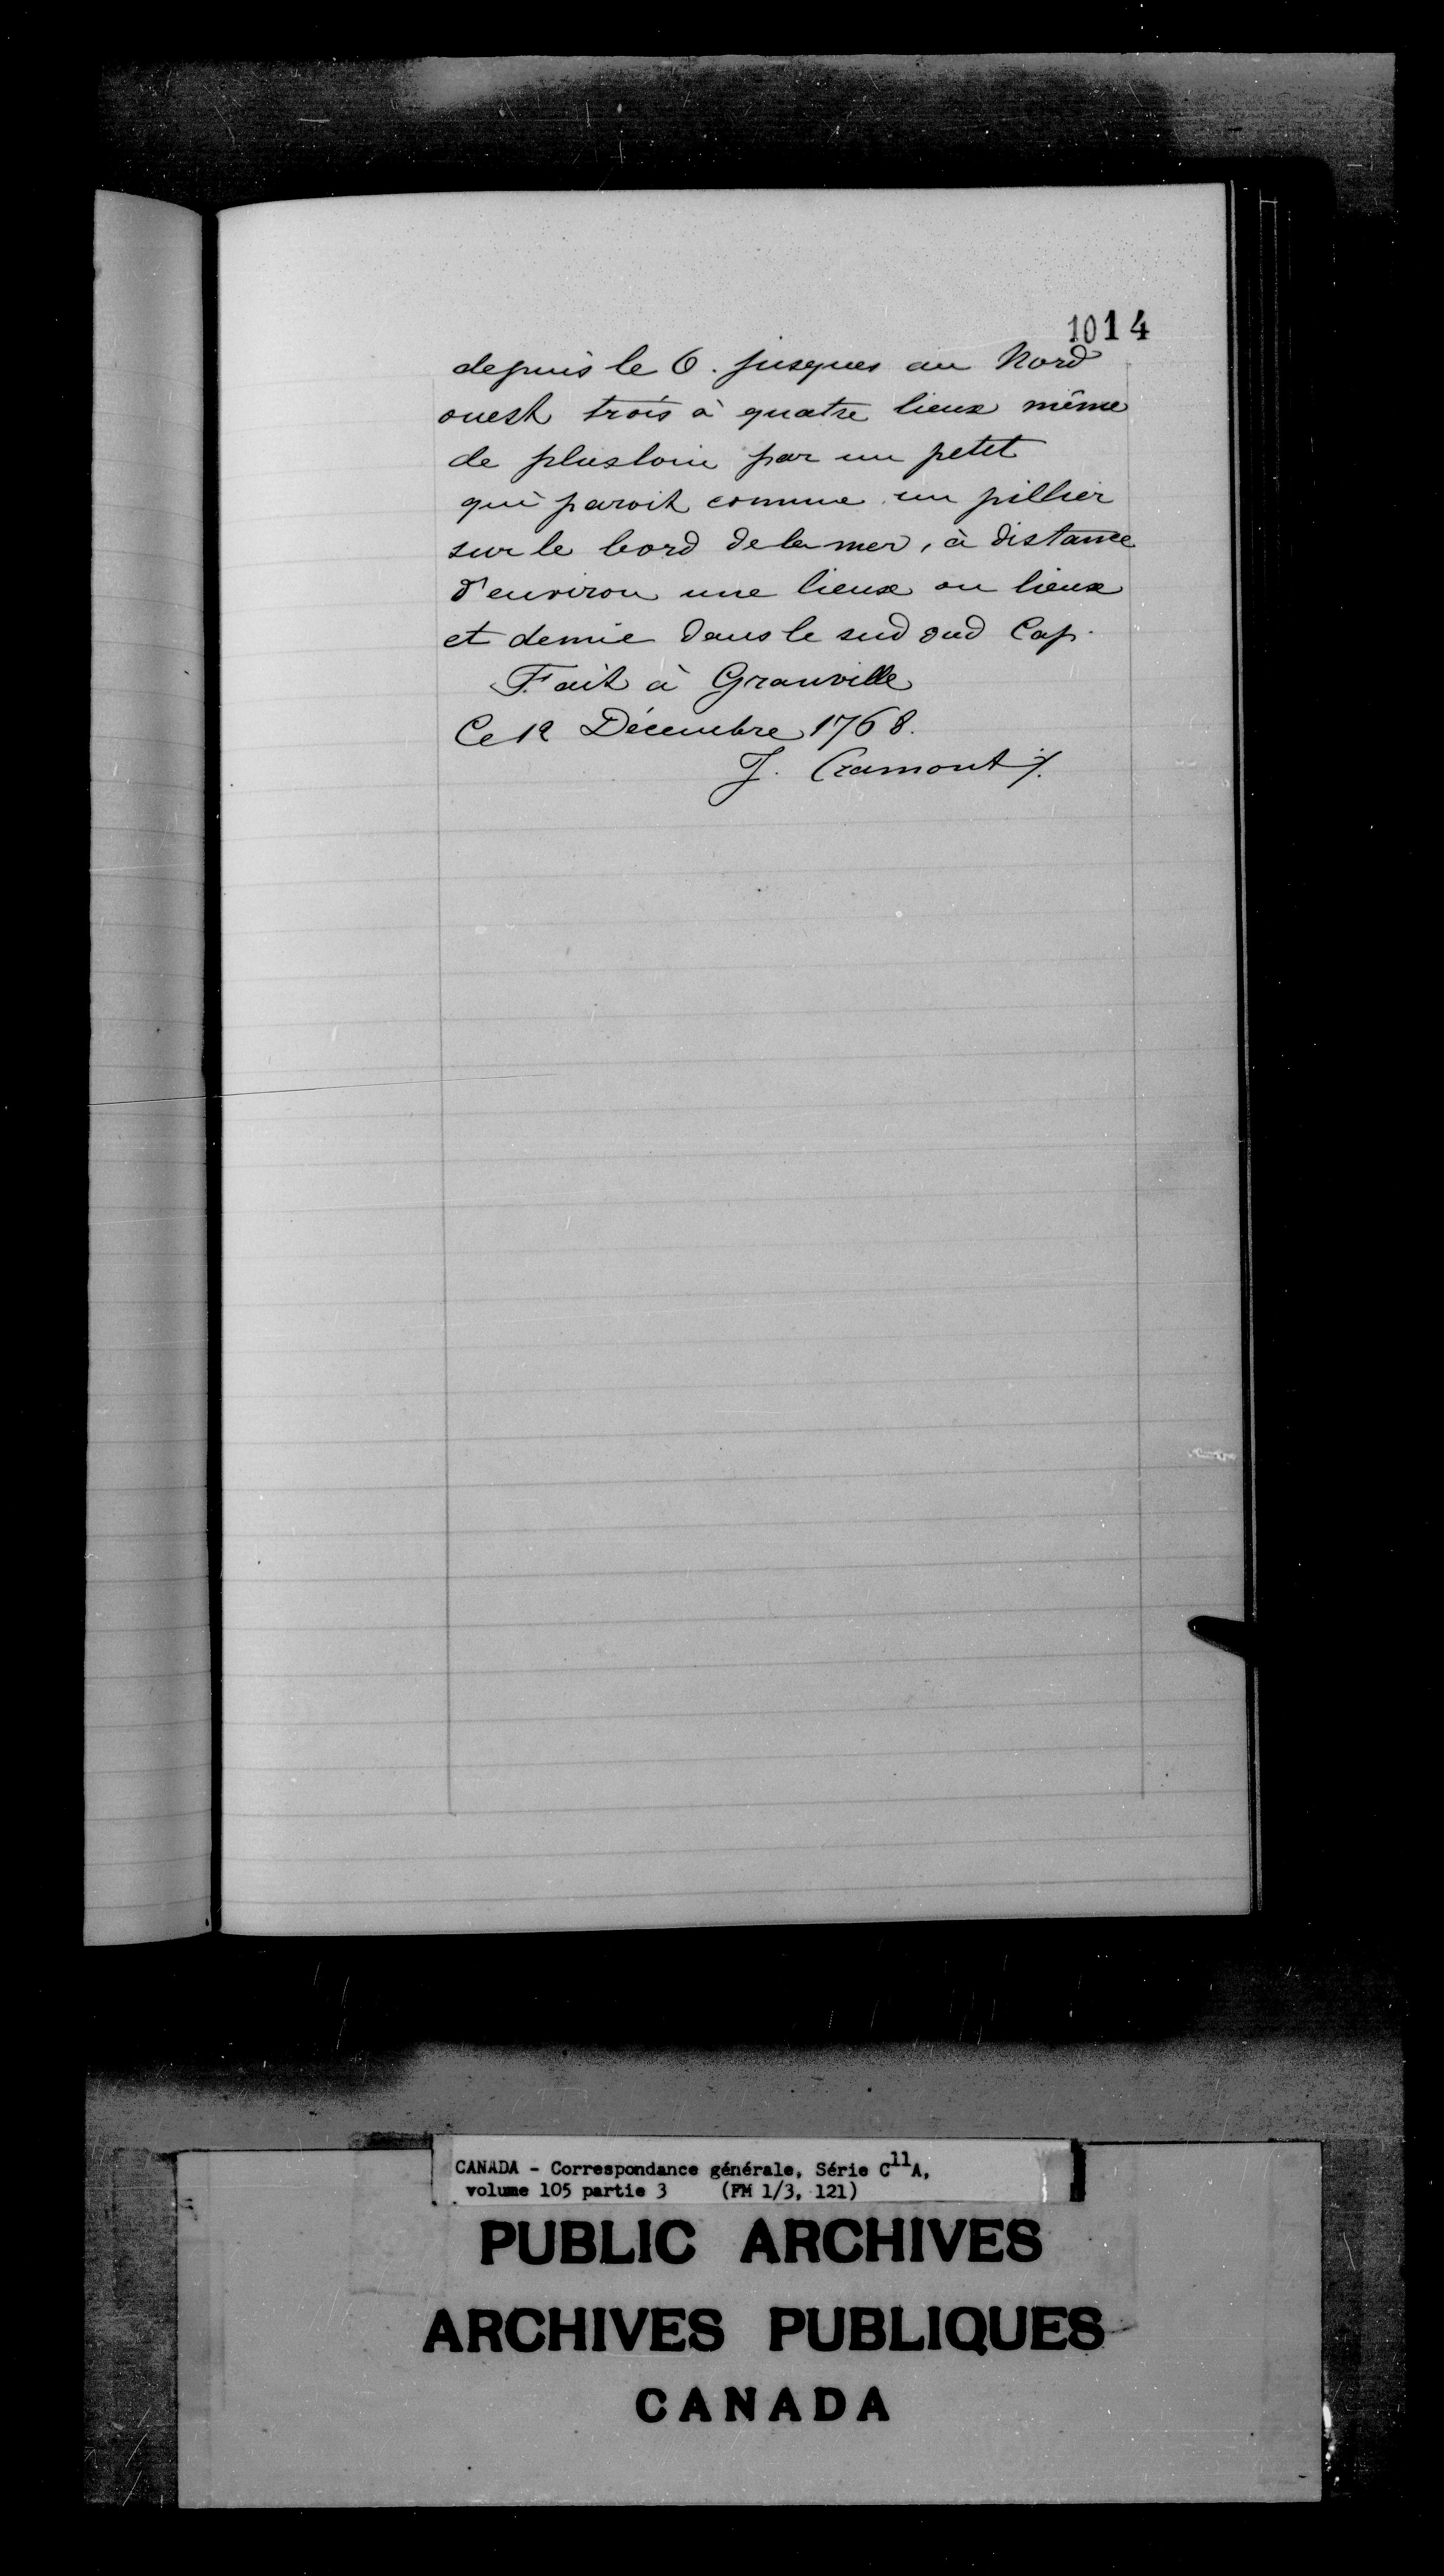 1014
depuis le 6. jusques au Nord
ouest trois à quatre lieux même
de plusloin par un petit
qui paroit comme un pillier
sur le bord de la mer, à distance
d'environ une lieux ou lieux
et demie dans le sud dud Cap.
Fait à Granville
Ce 12 Décembre 1768.
J. Cramont
CANADA - Correspondance générale, Série C11A,
volume 105 partie 3 (FM 1/3, 121)
PUBLIC ARCHIVES
ARCHIVES PUBLIQUES
CANADA